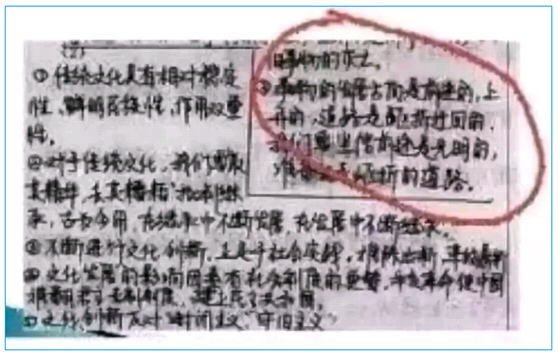 旧事物的灭亡。
②事物的发展方向是前进的,上
升的,道路是曲折迂回的,
我们要坚信前途是光明的,
准备走曲折的道路。
①传统文化具有相对稳定
性、鲜明民族性、作用双重
性。
②对于传统文化,我们要取
其精华,去其糟粕,批判继
承,古为今用,在继承中不断发展,在发展中不断继承。
③不断进行文化创新,立足于社会实践,推陈出新,革故鼎新
④文化发展的影响因素有社会制度的更替,
推翻君主专制制度,建立民主共和国。
文化创新反对"封闭主义""守旧主义"